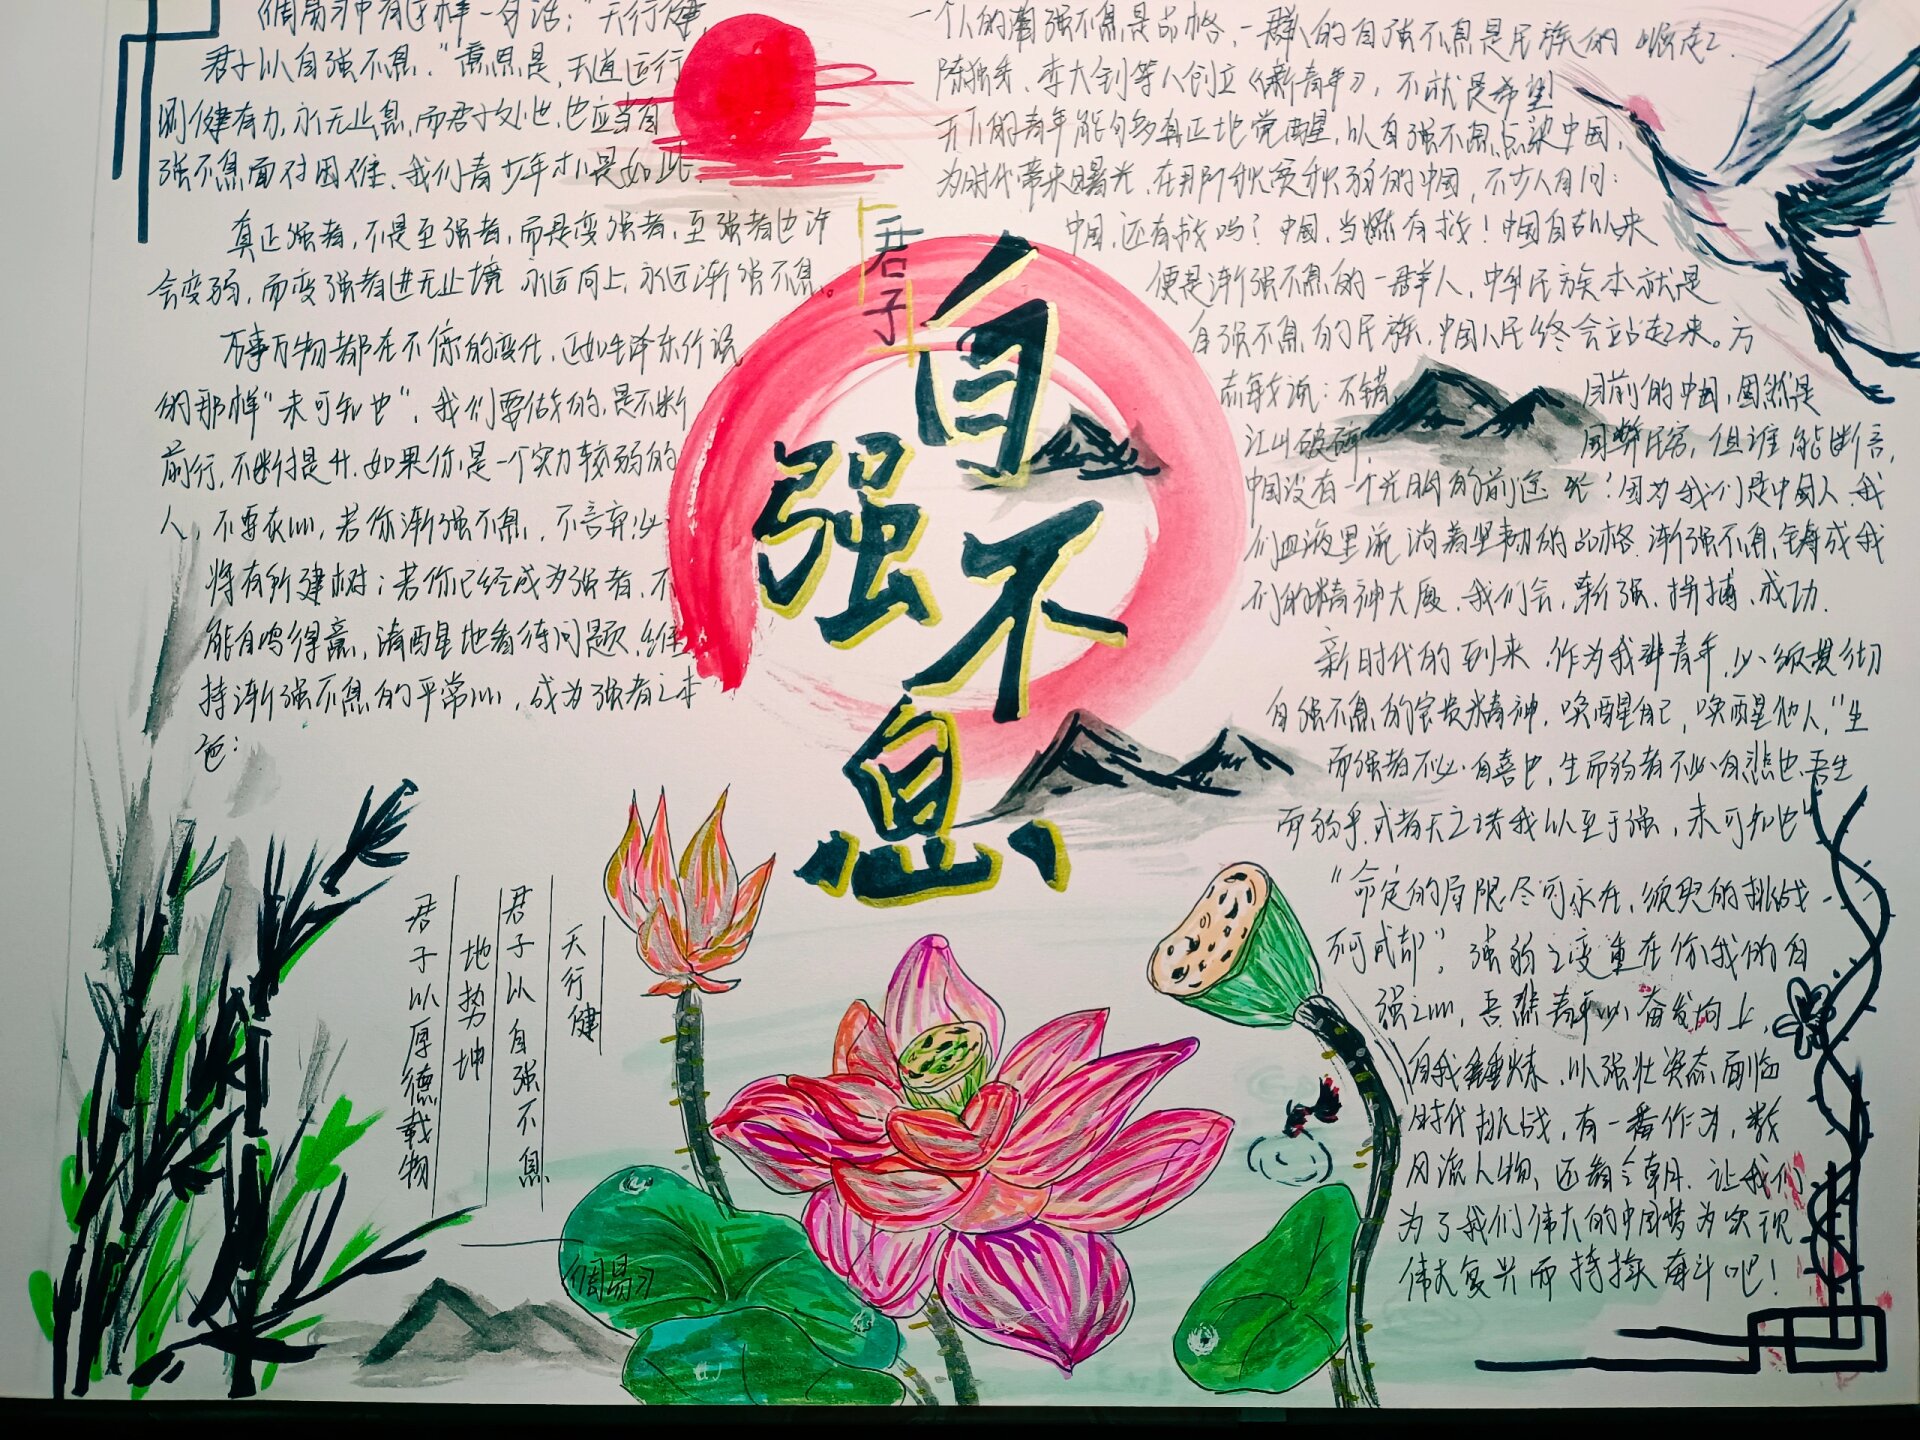 《周易》中有这样一句话："天行健,
君子以自强不息."意思是,天道运行
刚健有力,永无止息,而君子处世,也应当自
强不息面对困难、我们青少年才是如此.
真正强者,不是至强者,而是变强者,至强者也许
会变弱,而变强者进无止境 永远向上,永远渐强不息。
万事万物都在不停的变化,正如毛泽东所说
的那样"未可知也"、我们要做的,是不断
前行,不断提升.如果你是一个实力较弱的
人,不要灰心,若你渐强不息,不言弃必
将有所建树;若你已经成为强者,不
能自鸣得意,清醒地看待问题,维
持渐强不息的平常心,成为强者之本
色:
君子
自强不息
天行健
君子以自强不息
地势坤
君子以厚德载物
《周易》
一个人的渐强不息是品格,一群人的自强不息是民族的崛起.
陈独秀、李大钊等人创立《新青年》,不就是希望
天下的青年能够真正地觉醒,以自强不息点染中国,
为时代带来曙光,在那阶积贫积弱的中国,不少人自问:
中国,还有救吗?中国,当然有救!中国自古以来
便是渐强不息的一群人,中华民族本就是
自强不息的民族.中国人民终会站起来。方
志敏说:不错, 目前的中国,固然是
江山破碎 国弊民穷,但谁能断言,
中国没有一个光明的前途呢!因为我们是中国人.我
们血液里流淌着坚韧的品格.渐强不息,铸成我
们的精神大厦.我们会,渐强、拼搏、成功.
新时代的到来.作为我辈青年,必须贯彻
自强不息的宝贵精神,唤醒自己,唤醒他人,"生
而强者不必自喜也,生而弱者不必自悲也.吾生
而弱乎,或者天之诱我以至于强,未可知也"
"命定的局限尽可永在,须臾的挑战
不可或却",强弱之变重在你我的自
强之心,吾辈青年必奋发向上,
自我锤炼,以强壮姿态面临
时代挑战,有一番作为,数
风流人物,还看今朝.让我们
为了我们伟大的中国梦为实现
伟大复兴而持续奋斗吧!